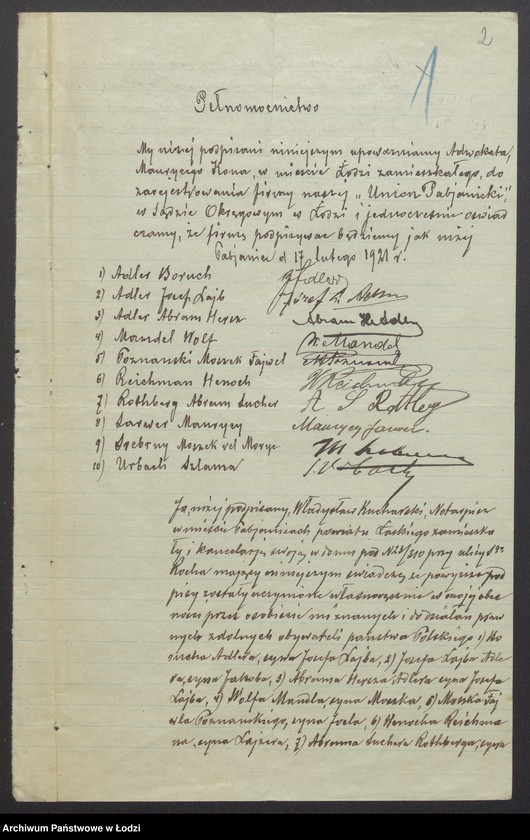 2
1
Pełnomocnictwo
My niżej podpisani niniejszym upoważniamy Adwokata,
Maurycego Kona, w mieście Łodzi zamieszkałego, do
zarejestrowania firmy naszej „Union Pabjanicki",
w Sądzie Okręgowym w Łodzi i jednocześnie oświad
czamy, że firmę podpisywać będziemy jak niżej
Pabjanice d 17 lutego 1921 r.
1) Adler Boruch
2) Adler Josef Lajb
3) Adler Abram Hersz Abram H Adler
4) Mandel Wolf W. Mandel
5) Poznanski Moszek Fajwel
6) Reichman Henoch
7) Rothberg Abram Sucher A S Rotberg
8) Sarwer Maurycy Maurycy
9) Srebrny Moszek vel Moryc
10) Urbach Szlama S. Urbach
Ja, niżej podpisany, Władysław Kucharski, Notarjusz
w mieście Pabjanicach powiatu Łaskiego zamieszka
ły i kancelarję swoją w domu pod N 23/210 przy ulicy Sgo
Rocha mający niniejszym świadczę, że powyższe pod
pisy zostały uczynione własnoręcznie w mojej obec
ności przez osobiście mi znanych i do działań praw
nych zdolnych obywateli państwa Polskiego 1) Bo
rucha Adlera, syna Josefa Lajba, 2) Josefa Lajba Adle
ra, syna Jakóba, 3) Abrama Hersza Adlera syna Josefa
Lajba, 4) Wolfa Mandla, syna Moszka, 5) Moszka Faj
wla Poznanskiego, syna Joela, 6) Henocha Reichma
na, syna Lajzera, 7) Abrama Suchera Rothberga, syna
Archiwum Państwowe w Łodzi